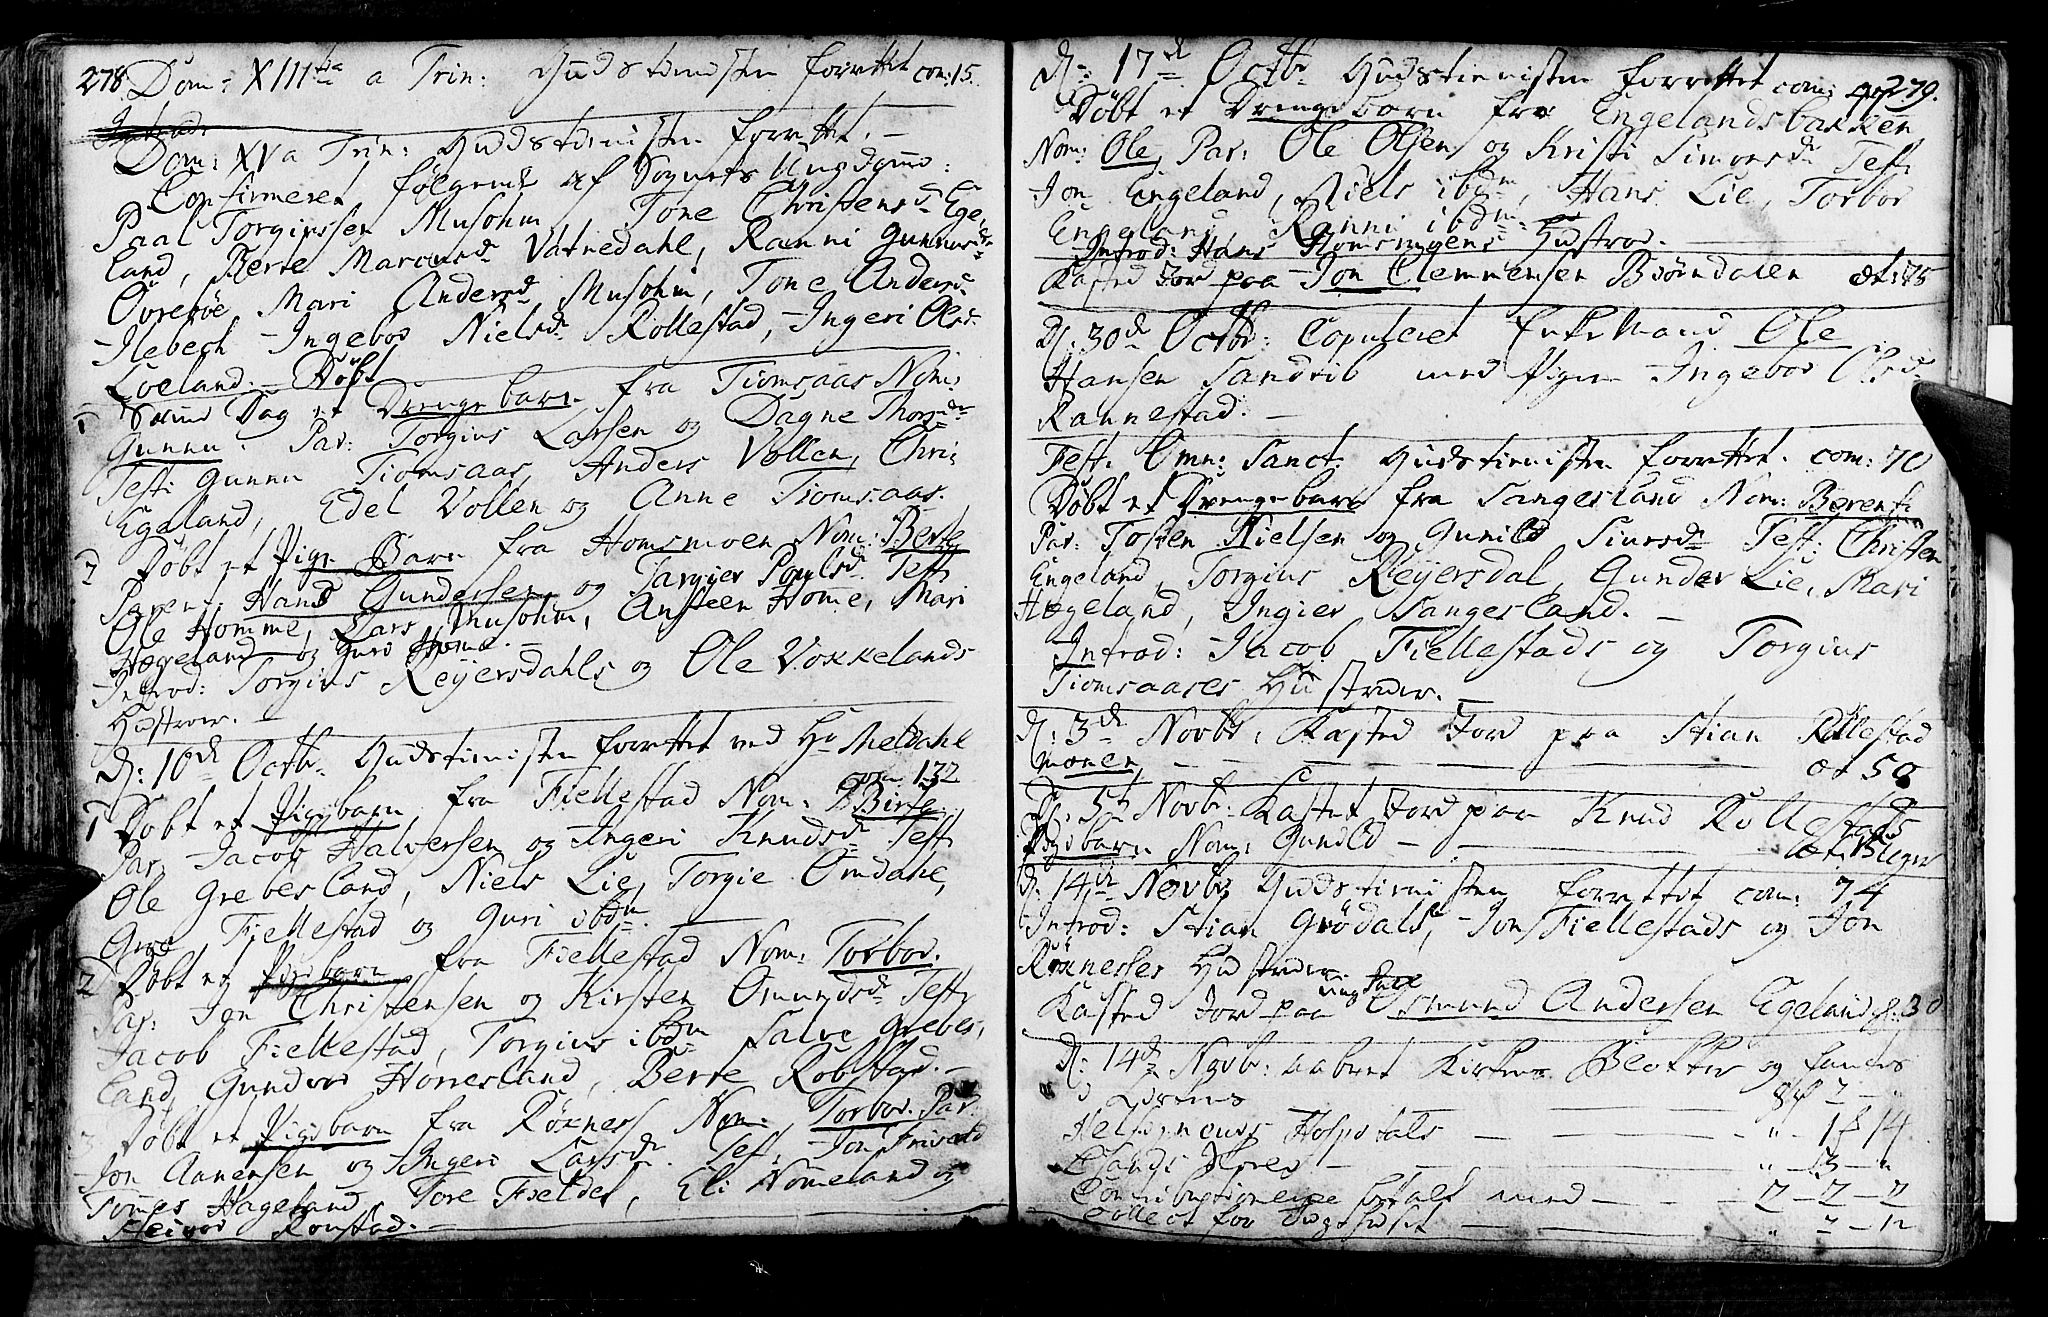 278. Dom: XIII ta a Trin: Gudstienisten forrettet com: 15.
Dom: XV a Trin: Gudstienisten forrettet. –
Confirmeret følgende af Sognets Ungdom:
Paal Torginssen Musohm, Tone Christensd. Ege,
land, Berte Marcusd. Vatnedahl, Ranni Gunnersd.
Øvrebøe Mari Andersd. Musohm, Tone Andersd.
Ilebech Ingebor Nielsd. Røllestad, Ingeri Olsd.
Loeland. – Døbt
1 Samme Dag et Drengebarn fra Tiomsaas Nom:
Gunnu. Par: Torgius Larsen og Dagne Thorsd.
Test: Gunnu Tiomsaas, Anders Vollen, Chri:
Egeland, Edel Vollen og Anne Tiomsaas.
2 Døbt et Pige Barn fra Homsmoen Nom: Berte
Paren: Hans Gundersen og Targier Poulsd. Test:
Ole Homme, Lars Musohm, Ansteen Home, Mari
Hægeland og Guro Home.
Introd: Torgius Reyersdahls og Ole Vokkelands
Hustruer. –
D: 10de Octb. Gudstienisten forrettet ved Hr Meldahl
com 132
1 Døbt et Pigebarn fra Fiellestad Nom: Birte.
Par. Jacob Halvorsen og Ingeri Knudsd. Test:
Ole Grebesland, Niels Lie, Torgie Omdahl,
Gro Fiellestad og Guri ibdm. –
2 Døbt et Pigebarn fra Fiellestad Nom: Torbor.
Par: Jon Christensen og Kirsten Omundsd. Test:
Jacob Fiellestad, Torgius ibdm Salve Grebes,
land, Gundvor Honnesland, Berte Robstad. –
3 Døbt et Pigebarn fra Røxness Nom: Torbor. Par.
Jon Aanensen og Ingeri Larsd. Test: Jon
Tomes Hageland, Tore Fieldet, Eli Nomeland og
Ronstad. –
D: 17de Octbr Gudstienisten forrettet com: 279.
Døbt et Drengebarn fra Engelandsbakken
Nom: Ole Par: Ole Olsen og Kristi Simonsd. Test:
Jon Engeland, Niels ibdm, Hans Lie, Torbor
Engeland Ranni ibdm.
Introd: Hans Homsmoens Hustroe. –
Kasted Jor paa Jon Clemmensen Biørndalen æt: 75
D: 30de Octbr: Copuleret Enke Mand Ole
Hansen Sandrib med Pigen Ingebor Olsd.
Rannestad. –
Fest. Omn: Sanct: Gudstienisten forrettet. com: 70
Døbt et Drengebarn fra Sangesland Nom: Berent.
Par: Tosten Nielsen og Gunild Siursd. Test: Christen
Engeland, Torgius Reyersdal, Gunder Lie, Mari
Hægeland, Ingier Sangesland. –
Introd: Jacob Fiellestads og Torgius
Tiomsaases Hustruer. –
D: 3de Novbr, Kasted Jord paa Stian Røllestad
Monen, – – – – – æt 50
D: 5te Novbr: Kastet Jord paa Knud Røllestads
Pigebarn Nom: Gunild – – æt Uger
D: 14de Novbr Gudstienisten forrettet com: 74
Introd: Stian Grødals, Jon Fiellestads og Jon
Røxnesses Hustruer.
Kasted Jord paa ung Karl Osmund Andersen Egeland æ: 30
D: 14de Novbr: aabnet Kirkens Blokker og fandes
i Kirkens 2 –
Helsignøers Hospitals – – – " – 1 ß 14
– – – " – 3 – "
Contributionene betalt med – – 2 – 2 – 2
Collect for – – " 2 – 12